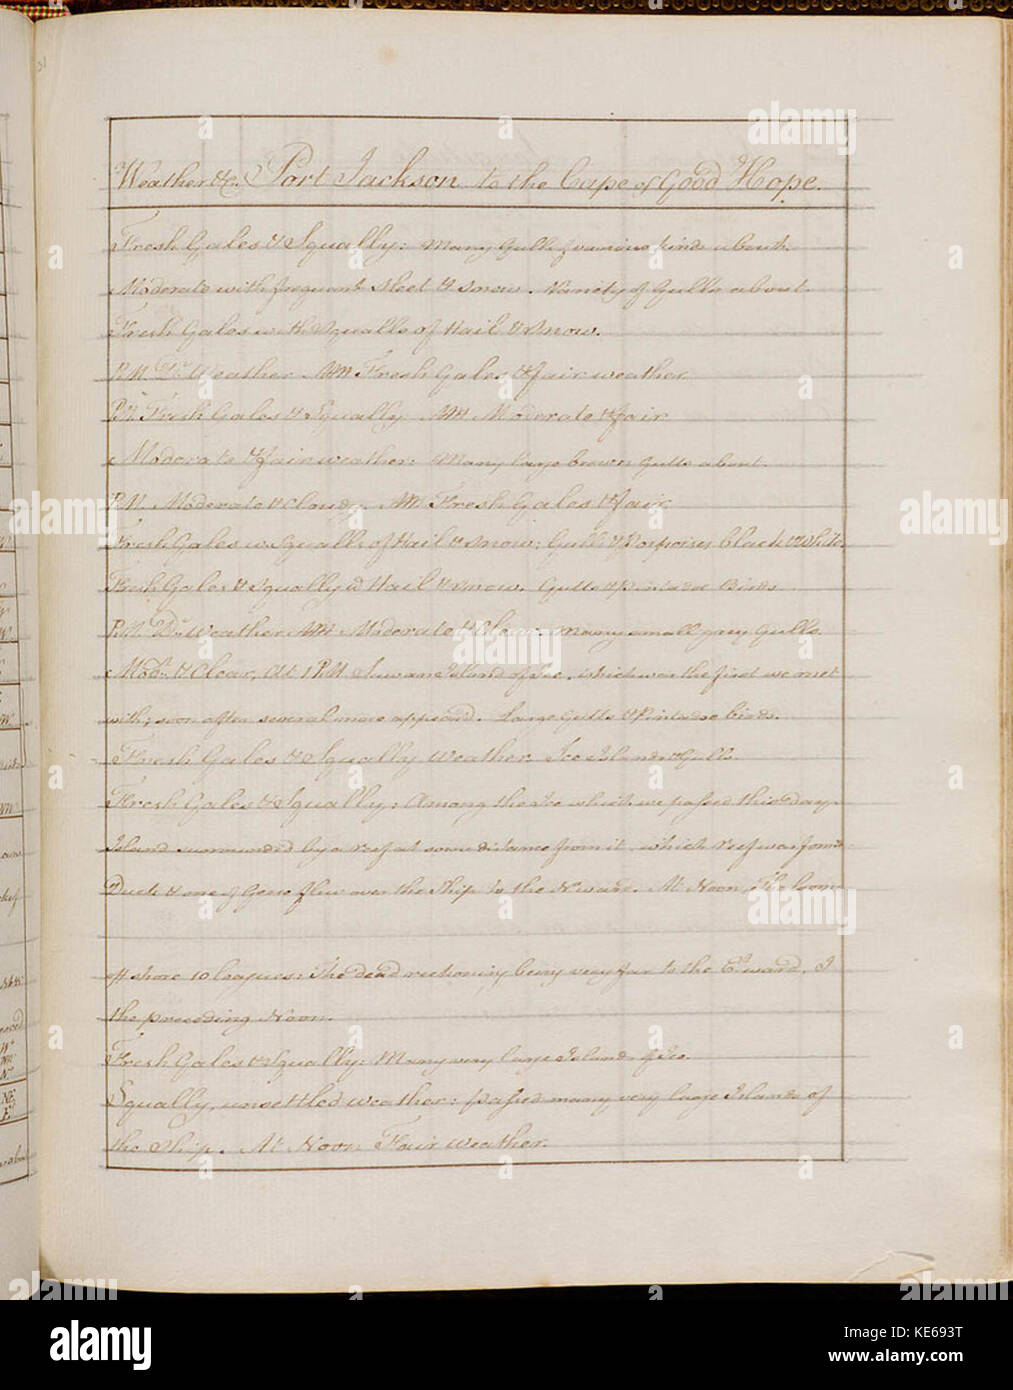 Weather &c. Port Jackson to the Cape of Good Hope.
Fresh Gales & Squally: Many Gulls of various kinds about.
Moderate with frequent Sleet & Snow. Variety of Gulls about.
Fresh Gales with Squalls of Hail & Snow.
P.M. Do. Weather AM Fresh Gales & fair weather
PM. Fresh Gales & Squally. AM Moderate & fair
Moderate & fair weather: Many large brown Gulls about.
P.M. Moderate & Cloudy. AM Fresh Gales & fair
Fresh Gales w. Squalls of Hail & Snow: Gulls & Porpoises black & white.
Fresh Gales & Squally Hail & Snow. Gulls & Pintadoe Birds
P.M. Do. Weather AM Moderate & Clear. many small grey Gulls
Modte. & Clear. At 1 PM Saw an Island of Ice, which was the first we met
with; soon after several more appeard. Large Gulls & Pintadoe birds.
Fresh Gales & Squally weather. Ice Islands & Gulls
Fresh Gales & Squally: Among the Ice which we passed this day.
Island surrounded by a reef at some distance from it, which reef was form'd
Duck & one of Geese flew over the Ship to the Nward. At Noon, The
off shore 10 leagues: The dead reckoning being very far to the Etward. I
the preceding Noon.
Fresh Gales & Squally: Many very large Islands of Ice.
Squally, unsettled weather: passed many very large Islands of
the Ship. At Noon Fair weather.
alamy
Image ID: KE693T
www.alamy.com